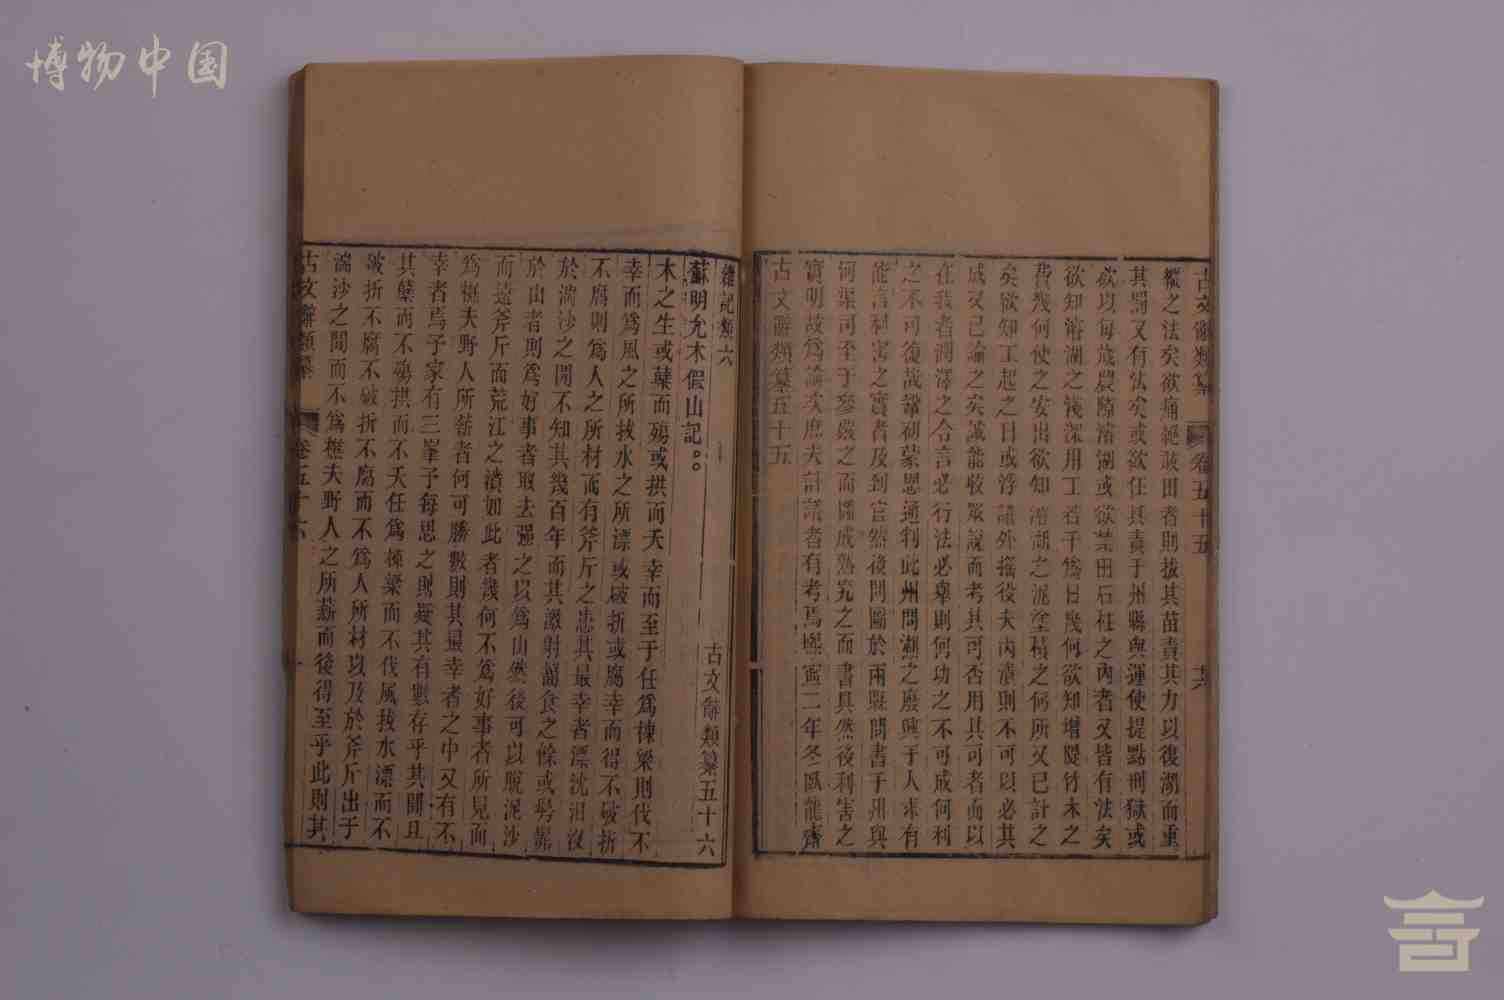 博物中国
古文辭類纂 卷五十五 十六
縱之法矣欲痛絕敢田者則拔其苗責其力以復湖而重
其罰又有法矣或欲任其責于州縣與運使提點刑獄或
欲以每歲農隙濬湖或欲禁田石柱之內者又皆有法矣
欲知濬湖之淺深用工若干爲日幾何欲知增隄竹木之
費幾何使之安出欲知濬湖之泥塗積之何所又已計之
矣欲知工起之日或浮議外搖役夫內潰則不可以必其
成又已論之矣誠能收眾說而考其可否用其可者而以
在我者潤澤之令言必行法必舉則何功之不可成何利
之不可復哉鞏初蒙恩通判此州問湖之廢興于人求有
能言利害之實者及到官然後問圖於兩縣問書于州與
河渠司至于參覈之而圖成熟究之而書具然後利害之
實明故爲論次庶夫計議者有考焉熙寧二年冬臥龍齋
古文辭類纂五十五
雜記類六 古文辭類纂五十六
蘇明允木假山記。。
木之生或蘖而殤或拱而夭幸而至于任爲棟梁則伐不
幸而爲風之所拔水之所漂或破折或腐幸而得不破折
不腐則爲人之所材而有斧斤之患其最幸者漂沈汩沒
於湍沙之間不知其幾百年而其激射齧食之餘或髣髴
於山者則爲好事者取去强之以爲山然後可以脫泥沙
而遠斧斤而荒江之濆如此者幾何不爲好事者所見而
爲樵夫野人所薪者何可勝數則其最幸者之中又有不
幸者焉予家有三峯予每思之則疑其有數存乎其間且
其蘖而不殤拱而不夭任爲棟梁而不伐風拔水漂而不
破折不腐不破折不腐而不爲人所材以及於斧斤出于
湍沙之間而不爲樵夫野人之所薪而後得至乎此則其
古文辭類纂 卷五十六 一